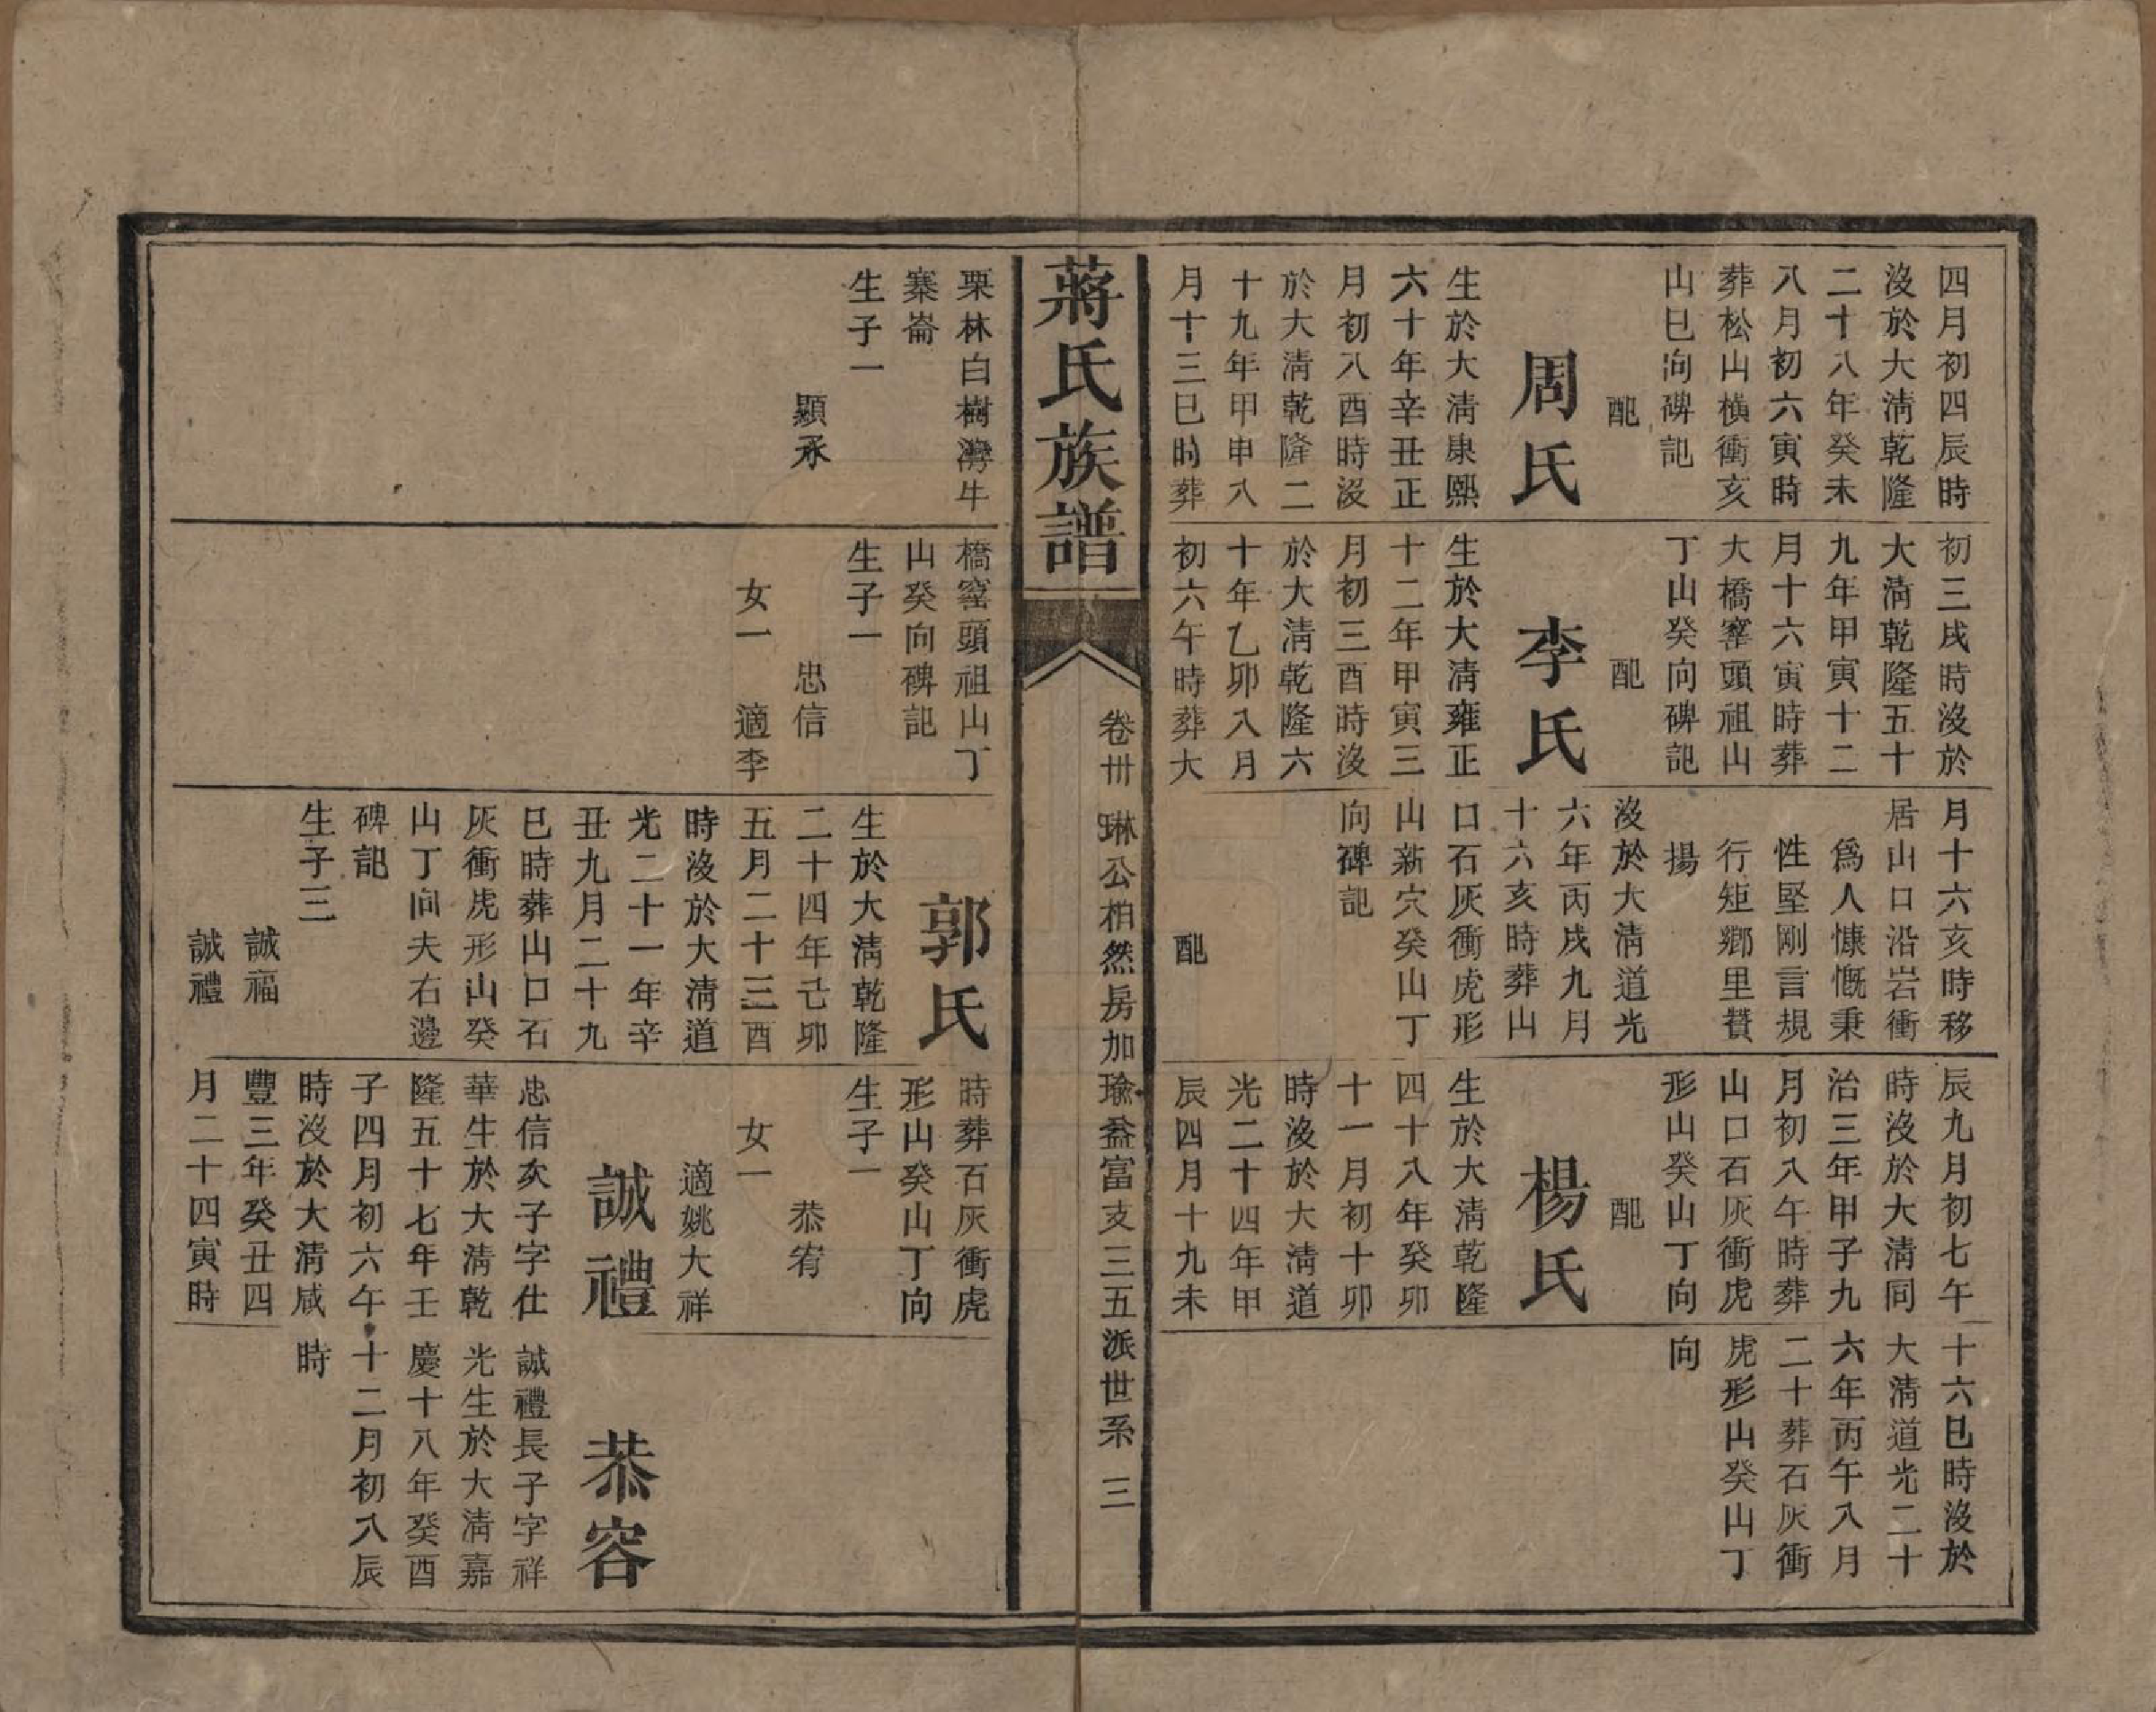 四月初四辰時
沒於大清乾隆
二十八年癸未
八月初六寅時
葬松山橫衝亥
山巳向碑記
配
周氏
生於大清康熙
六十年辛丑正
月初八酉時沒
於大清乾隆二
十九年甲申八
月十三巳時葬
初三戌時沒於
大清乾隆五十
九年甲寅十二
月十六寅時葬
大橋窰頭祖山
丁山癸向碑記
配
李氏
生於大清雍正
十二年甲寅三
月初三酉時沒
於大清乾隆六
十年乙卯八月
初六午時葬大
月十六亥時移
居山口沿岩衝
爲人慷慨秉
性堅剛言規
行矩鄉里贊
揚
沒於大清道光
六年丙戌九月
十六亥時葬山
口石灰衝虎形
山新穴癸山丁
向碑記
配
辰九月初七午
時沒於大清同
治三年甲子九
月初八午時葬
山口石灰衝虎
形山癸山丁向
配
楊氏
生於大清乾隆
四十八年癸卯
十一月初十卯
時沒於大清道
光二十四年甲
辰四月十九未
十六巳時沒於
大清道光二十
六年丙午八月
二十葬石灰衝
虎形山癸山丁
向
蔣氏族譜
卷卅 琳公柏然房加瑜益富支三五派世系 三
栗林白樹灣牛
寨崙
生子一
顯承
橋窰頭祖山丁
山癸向碑記
生子一
忠信
女一 適李
郭氏
生於大清乾隆
二十四年己卯
五月二十三酉
時沒於大清道
光二十一年辛
丑九月二十九
巳時葬山口石
灰衝虎形山癸
山丁向夫右邊
碑記
生子三
誠福
誠禮
時葬石灰衝虎
形山癸山丁向
生子一
恭宥
女一
適姚大祥
誠禮
忠信次子字仕
華生於大清乾
隆五十七年壬
子四月初六午
時沒於大清咸
豐三年癸丑四
月二十四寅時
恭容
誠禮長子字祥
光生於大清嘉
慶十八年癸酉
十二月初八辰
時